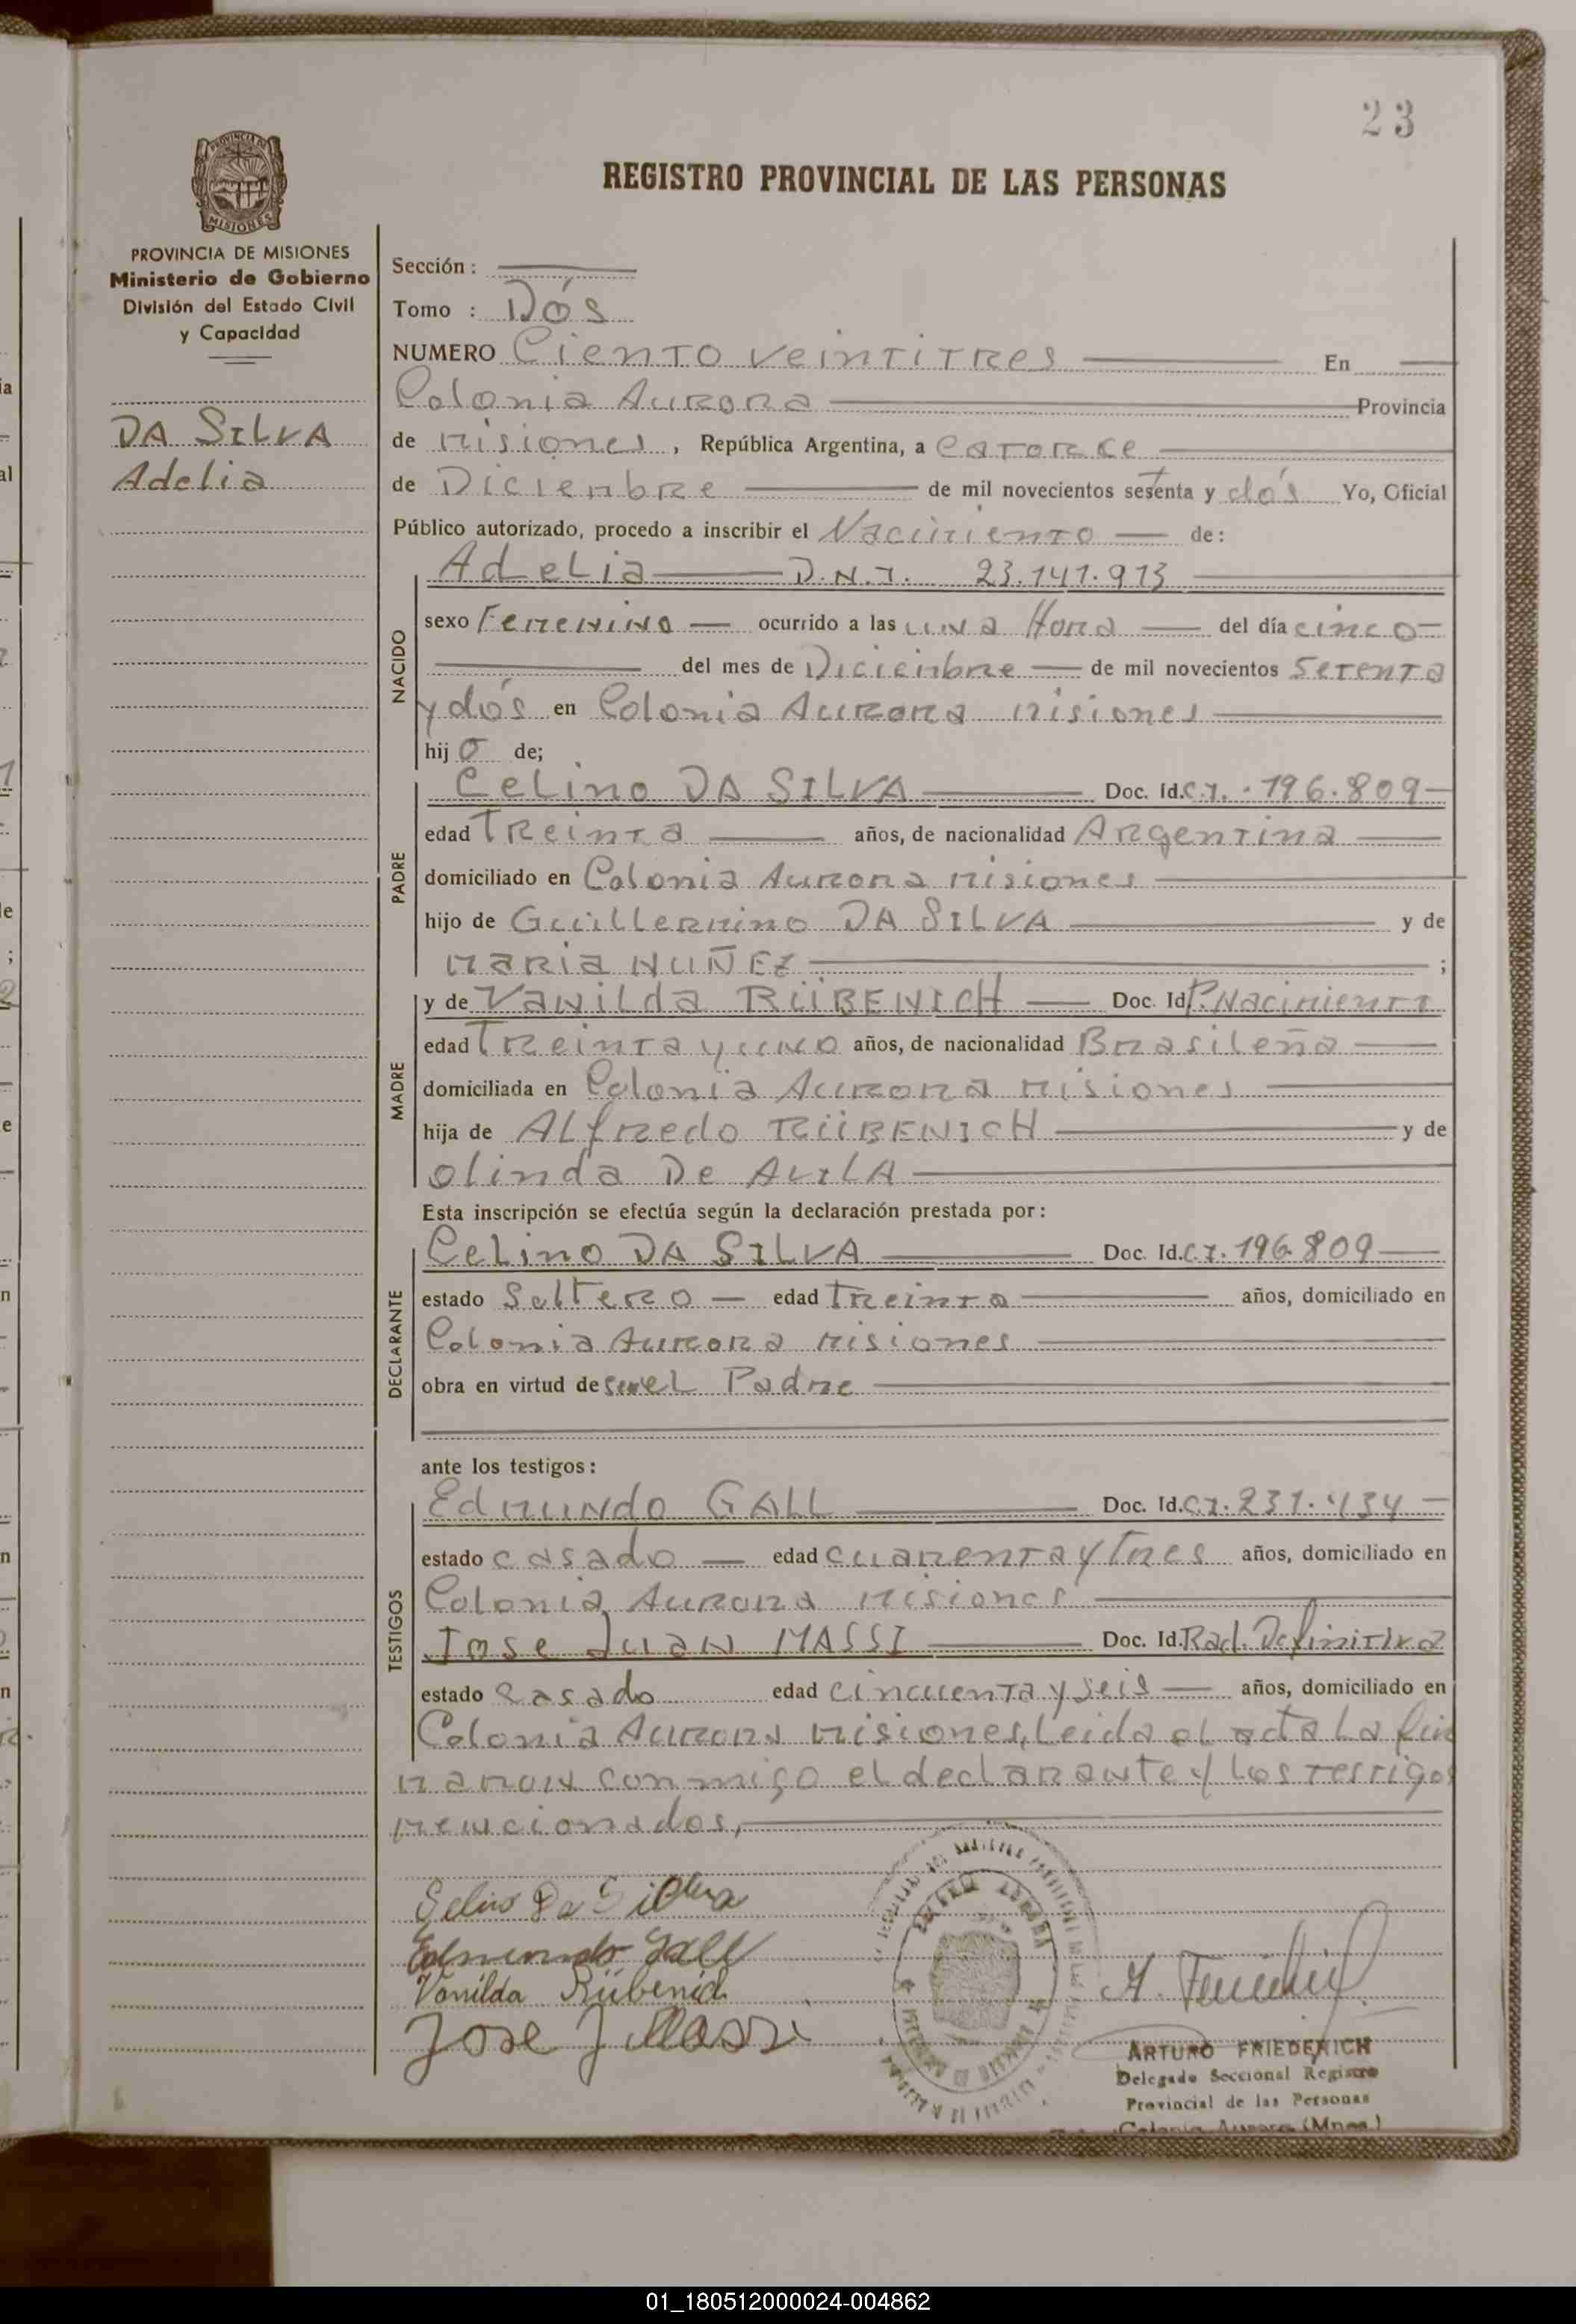 23
REGISTRO PROVINCIAL DE LAS PERSONAS
PROVINCIA DE MISIONES
Ministerio de Gobierno
División del Estado Civil
y Capacidad
DA SILVA
Adelia
Sección :
Tomo : Dós
NUMERO Ciento veintitres En
Colonia Aurora Provincia
de Misiones , República Argentina, a catorce
de Diciembre de mil novecientos setenta y dós Yo, Oficial
Público autorizado, procedo a inscribir el Nacimiento de :
Adelia D.N.I. 23.141.913
NACIDO
sexo Femenino ocurrido a las una Hora del día cinco
del mes de Diciembre de mil novecientos setenta
y dós en Colonia Aurora Misiones
hij o de;
PADRE
Celino DA SILVA Doc. Id. C.I. 196.809
edad Treinta años, de nacionalidad Argentina
domiciliado en Colonia Aurora Misiones
hijo de Guillermino DA SILVA y de
Maria NUÑEZ ;
MADRE
y de Vanilda RÜBENICH Doc. Id P. Nacimiento
edad Treinta y uno años, de nacionalidad Brasileña
domiciliada en Colonia Aurora Misiones
hija de Alfredo RÜBENICH y de
Olinda De AVILA
Esta inscripción se efectúa según la declaración prestada por :
DECLARANTE
Celino DA SILVA Doc. Id. C.I. 196.809
estado Soltero edad Treinta años, domiciliado en
Colonia Aurora Misiones
obra en virtud de ser el Padre
ante los testigos :
TESTIGOS
Edmundo GALL Doc. Id. C.I. 231.434
estado casado edad cuarenta y Tres años, domiciliado en
Colonia Aurora Misiones
Jose Juan MASSI Doc. Id. Rad. Definitiva
estado casado edad cincuenta y seis años, domiciliado en
Colonia Aurora Misiones, Leida el acta La fir
maron conmigo el declarante y los testigos
mencionados,
Selino Da Silva
Edmundo Gall
Vanilda Rübenich
Jose J Massi
ARTURO FRIEDERICH
Delegado Seccional Registro
Provincial de las Personas
Colonia Aurora (Mnes.)
01_180512000024-004862